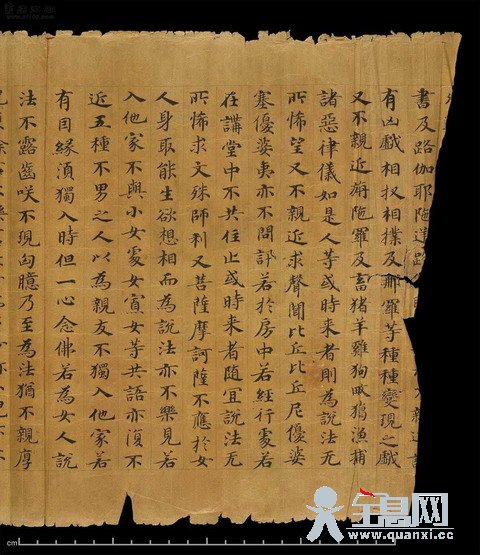 書及路伽耶陁逆路親近諸
有凶戲相扠相撲及那羅等種種變現之戲
又不親近旃陁羅及畜猪羊雞狗畋獦漁捕
諸惡律儀如是人等或時来者則為說法无
所怖望又不親近求聲聞比丘比丘尼優婆
塞優婆夷亦不問訊若於房中若經行處若
在講堂中不共住止或時来者隨宜說法无
所怖求文殊師利又菩薩摩訶薩不應於女
人身取能生欲想相而為說法亦不樂見若
入他家不與小女處女寡女等共語亦復不
近五種不男之人以為親友不獨入他家若
有因緣湏獨入時但一心念佛若為女人說
法不露齒咲不現匈臆乃至為法猶不親厚
cm
全息网
www.quanxi.cc